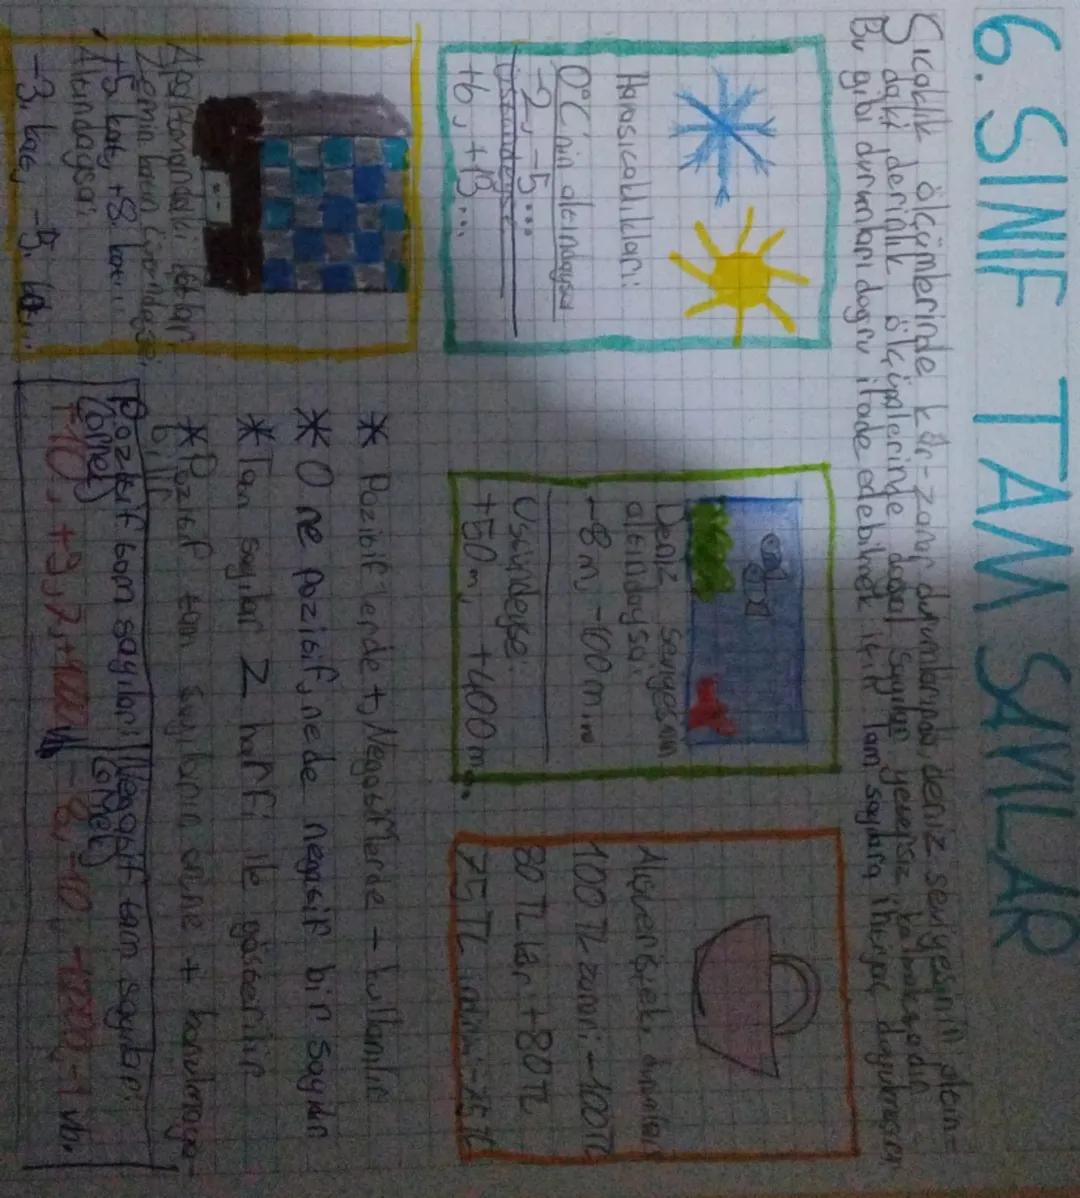 6. SINIF TAM SAYILAR
Sıcaklık ölçümlerinde kâr-zarar durumlarında, deniz seviyesinin altın=
daki derinlik ölçümlerinde doğal sayılar yetersiz kalmaktadır
Bu gibi durumları doğru ifade edebilmek için tam sayılara ihtiyaç duyulmuştur
Hava sıcaklıkları:
0°C'nin altındaysa
-2, -5...
Üstündeyse
+6, +13...
Deniz seviyesinin
altındaysa:
-8 m, -100 m...
Üstündeyse:
+50 m, +400 m...
Alışverişteki durumlar
100 TL zarar: -100 TL
80 TL kâr: +80 TL
75 TL indirim: -75 TL
Apartmandaki katlar:
Zemin katın üzerindeyse;
+5. kat, +8. kat...
Altındaysa:
-3. kat, -5. kat...
* Pozitiflerde +, Negatiflerde - kullanılır
* 0 ne pozitif, nede negatif bir sayıdır
* Tam sayılar Z harfi ile gösterilir
* Pozitif tam sayıların önüne + konulmaya-
bilir
Pozitif tam sayılar
(örnek)
+10, +3, 7, +1000
Negatif tam sayılar
(örnek)
-8, -10, -1 vb.